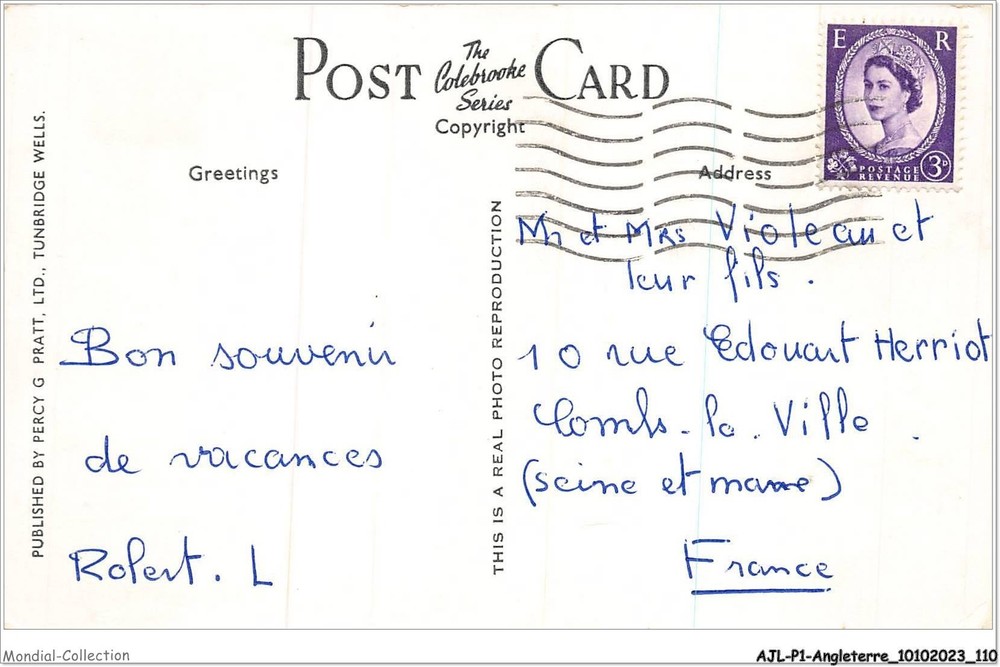 POST CARD
The
Colebrooke
Series
Copyright
E R
POSTAGE
REVENUE
3D
Greetings
Address
PUBLISHED BY PERCY G PRATT, LTD., TUNBRIDGE WELLS.
THIS IS A REAL PHOTO REPRODUCTION
Bon souvenir
de vacances
Robert. L
Mr et MRS Violeau et
leur fils.
10 rue Edouart Herriot
Combs-la-Ville.
(seine et marne)
France
Mondial-Collection
AJL-P1-Angleterre_10102023_110